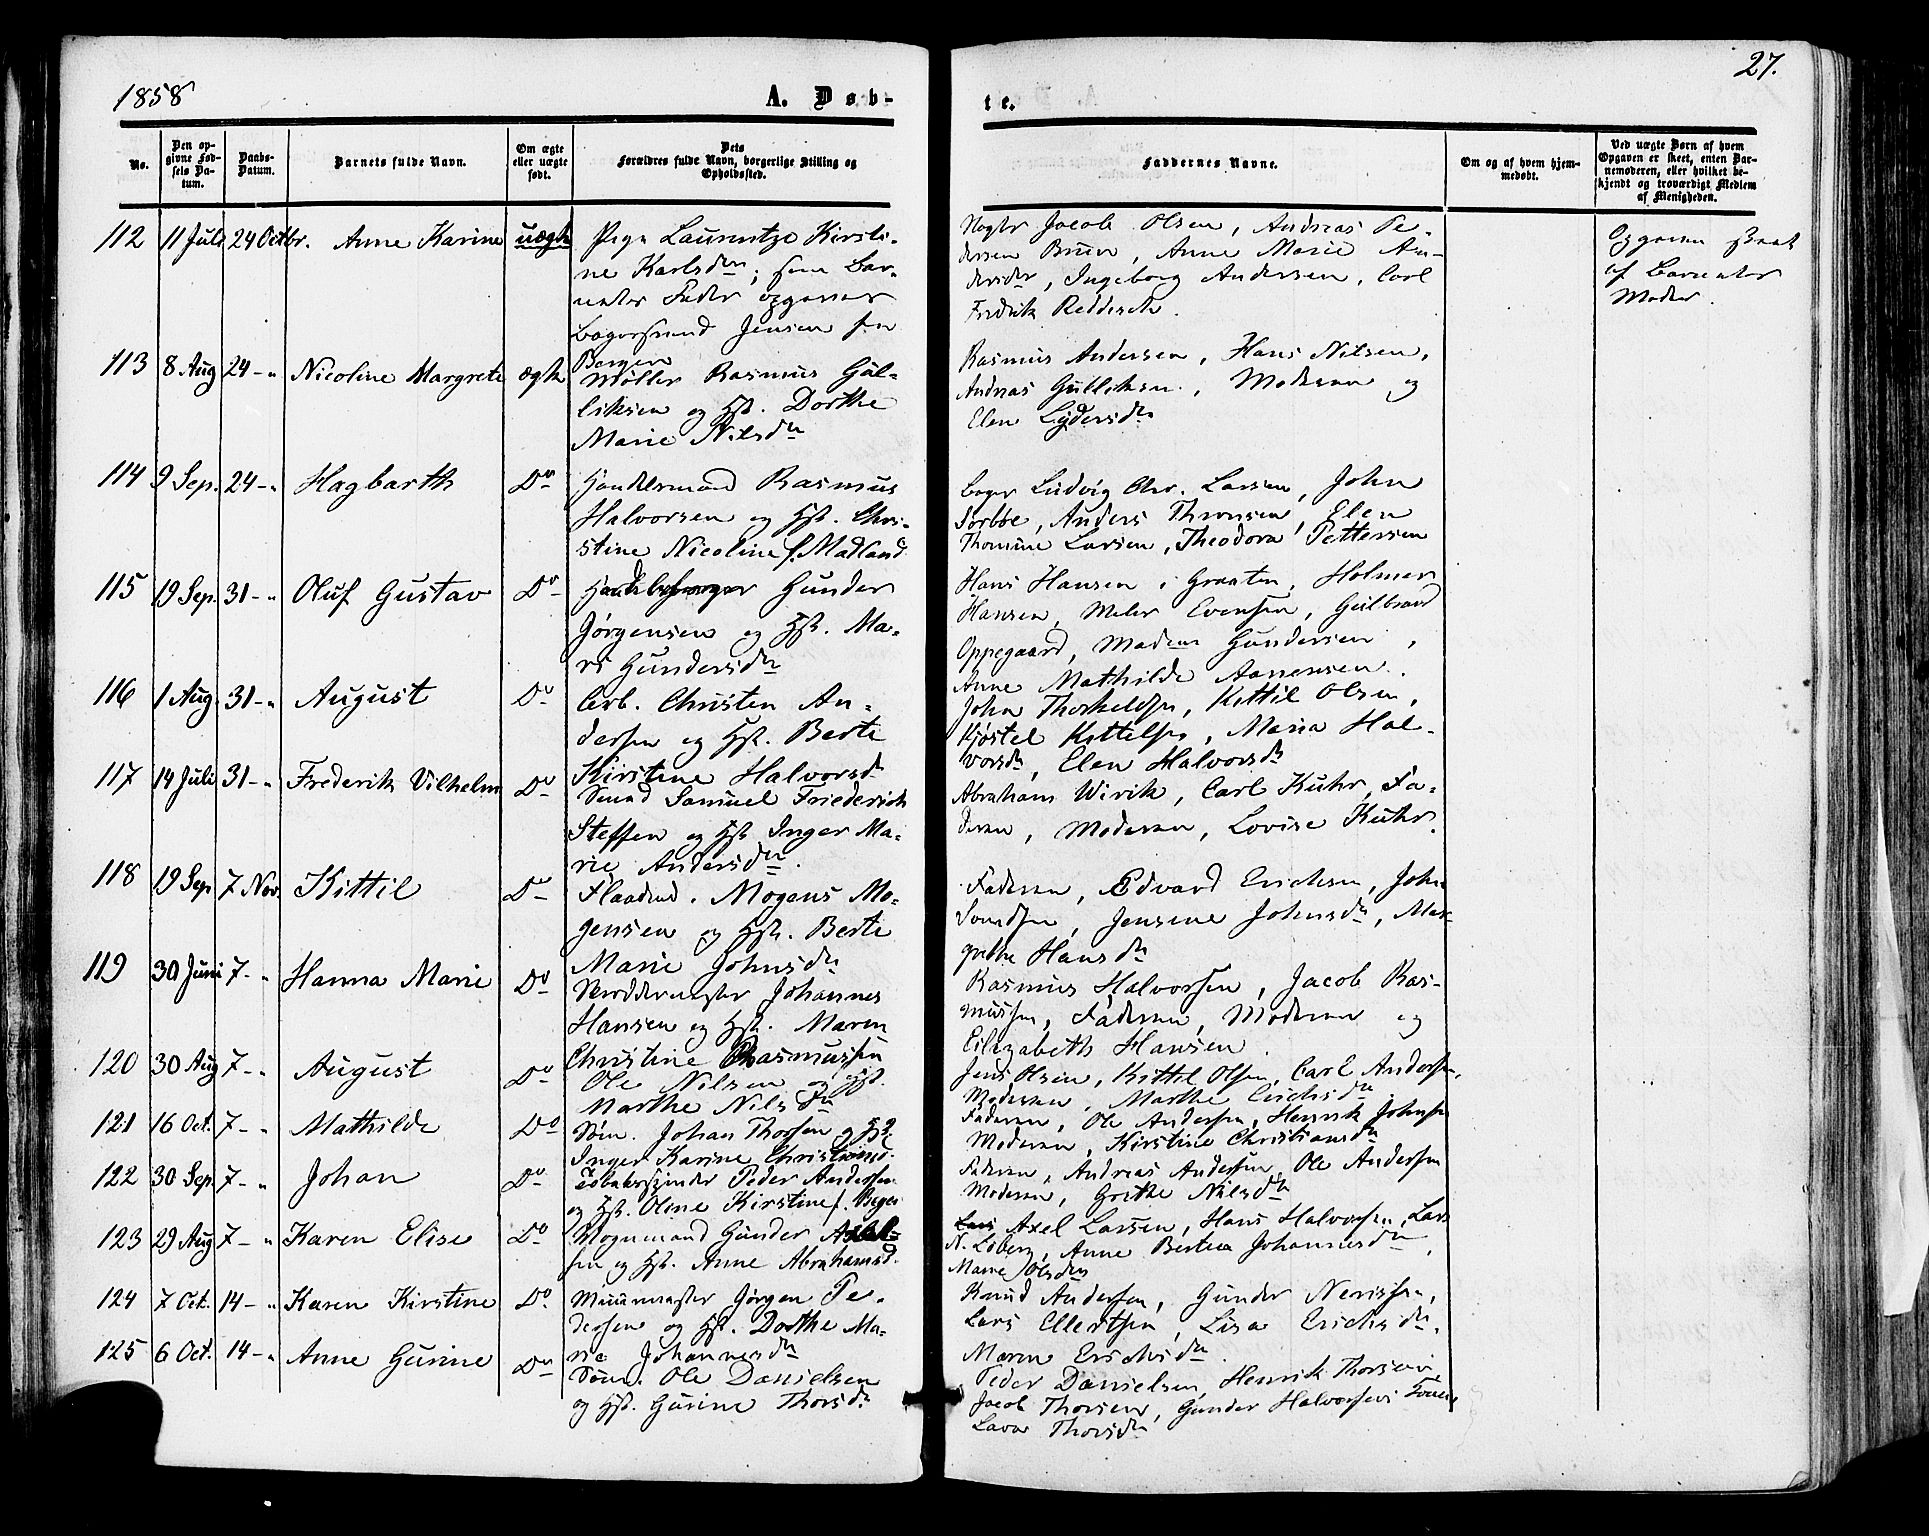 1858
A. Døb-
te.
27.
No.
Den op-
givne Fød-
sels Da-
tum.
Daabs-
Datum.
Barnets fulde Navn.
Om ægte
eller uægte
født.
Dets
Forældres fulde Navn, borgerlige Stilling og
Opholdssted.
Faddernes Navne.
Om og af hvem hjem-
medøbt.
Ved uægte Børn af hvem
Opgaven er skeet, enten Bar-
nemoderen, eller hvilket be-
kjendt og troværdigt Medlem
af Menigheden.
112 11 Juli 24 Octbr. Anne Karine uægte Pige Laurentze Kirsti-
ne Karlsdtr, som Bar-
nets Fader opgives
Jensen fra
Bergen
Jacob Olsen, Andreas Pe-
dersen Bruun, Anne Marie An-
dersdtr, Ingeborg Andersen, Carl
Fredrik Reddersch.
Opgaven skeet
af Barnets
Moder.
113 8 Aug 24 - " Nicoline Margrete ægte Møller Rasmus Gul-
liksen og Hst. Dorthe
Marie Nilsdtr
Rasmus Andersen, Hans Nilsen,
Andreas Gulliksen, Moderen og
Elen Lydersdtr
114 9 Sep. 24 - " Hagbarth Do Handelsmand Rasmus
Halvorsen og Hst. Chri-
stine Nicoline f. Madland
Ludvig Chr. Larsen, John
Sorbbe, Anders Thronsen, Elen
Thomine Larsen, Theodora Pettersen
115 19 Sep. 31 - " Oluf Gustav Do Gunder
Jørgensen og Hst. Ma-
ri Gundersdtr
Hans Hansen i Graaten, Holmer
Hansen, Evensen, Gulbrand
Oppegaard, Madam Gundersen,
Anne Mathilde Aanensen.
116 1 Aug. 31 - " August Do Arb. Christen An-
dersen og Hst. Berte
Kirstine Halvorsdtr
John Thorkeldsen, Kittil Olsen,
Kjøstel Kittelsen, Maria Hal-
vorsdtr, Elen Halvorsdtr
117 14 Juli 31 - " Frederik Vilhelm Do Smed Samuel Friederich
Steffen og Hst Inger Ma-
rie Andersdtr.
Abraham Wirik, Carl Kuhr, Fa-
deren, Moderen, Lovise Kuhr.
118 19 Sep 7 Nov. Kittil Do Mogens Mo-
gensen og Hst. Berte
Marie Johnsdtr
Faderen, Edvard Erichsen, John
Jensine Johnsdtr, Mar-
grethe Hansdtr
119 30 Juni 7 - " Hanna Marie Do Johannes
Hansen og Hst. Maren
Christine Rasmussen
Rasmus Halvorsen, Jacob Ras-
mussen, Faderen, Moderen og
Elizabeth Hansen.
120 30 Aug 7 - " August Do Ole Nilsen og Hst.
Marthe Nilsdtr
Jens Olsen, Kittil Olsen, Carl Andersen,
Moderen, Marthe Erichsdtr
121 16 Oct. 7 - " Mathilde Do Søm. Johan Thorsen og Hst
Inger Karine Christiansd.
Faderen, Ole Andersen, Henrik Johnsen
Moderen, Kirstine Christiansdtr
122 30 Sep. 7 - " Johan Do Tobakspinder Peder Andersen
og Hst. Oline Kirstine f.
Faderen, Andreas Andersen, Ole Andersen
Moderen, Grethe Nilsdtr
123 29 Aug 7 - " Karen Elise Do Vognmand Gunder
sen og Hst. Anne Abrahamsd.
Axel Larsen, Hans Halvorsen, Lars
N. Loberg, Anne Bertea Johannesdtr,
Marie Olsdtr
124 7 Oct. 14 - " Karen Kirstine Do Muurmester Jørgen Pe-
dersen og Hst. Dorthe Ma-
rie Johannesdtr
Knud Andersen, Gunder Nerisen,
Lars Ellertsen, Lisa Erichsdtr.
Maren Erichsdtr.
125 6 Oct. 14 - " Anne Gurine Do Søm. Ole Danielsen
og Hst. Gurine Thorsdtr
Peder Danielsen, Henrik Thorsen,
Jacob Thorsen, Gunder Halvorsens
Lava Thorsdtr